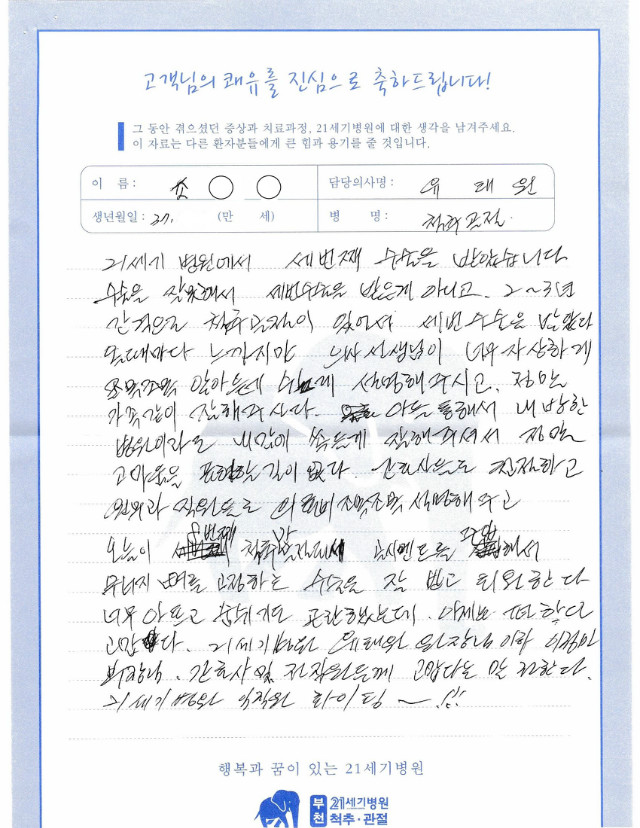 고객님의 쾌유를 진심으로 축하드립니다!
그 동안 겪으셨던 증상과 치료과정, 21세기병원에 대한 생각을 남겨주세요.
이 자료는 다른 환자분들에게 큰 힘과 용기를 줄 것입니다.
이 름 : 조 ○ ○ 담당의사명 : 유 태 원
생년월일 : 27. (만 세) 병 명 : 척추골절.
21세기 병원에서 세번째 수술을 받았습니다
수술을 잘못해서 세번수술을 받은게 아니고. 2~3년
간격으로 척추골절이 있어서 세번 수술을 받았다
올때마다 느끼지만 의사선생님이 너무 자상하게
조목조목 알아듣게 쉽게 설명해주시고. 정말
가족같이 잘해주신다. 아는 통해서 내 방한
병원이라는 내맘에 쏙들게 잘해주셔서 정말
고마움을 표현할 길이 없다. 간호사분들도 친절하고
원무과 직원들도 병원비 조목조목 설명해주고
오늘이 3번째 척추골절되서 골시멘트를 해서
무너진 뼈를 고정하는 수술을 잘 받고 퇴원한다
너무 아프고 움직기도 곤란했었는데. 이제는 편하다
고맙다. 21세기병원 유태원 원장님 이하
부장님. 간호사 및 전직원들께 고맙다는 말 전한다.
21세기병원 임직원 화이팅 ~ !!
행복과 꿈이 있는 21세기병원
부천 21세기병원
척추·관절